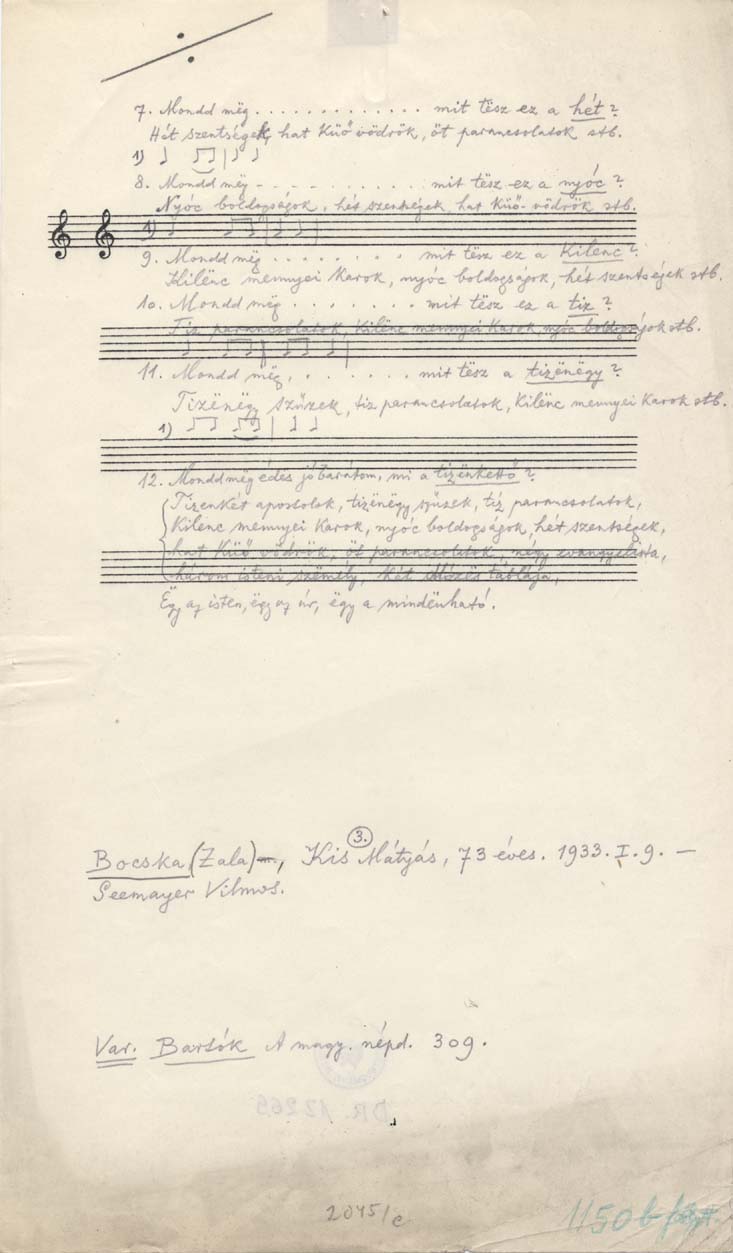 7. Mondd mëg . . . . . . . . . . . . . mit tësz ez a hét?
Hét szentségek, hat Küő vödrök, öt parancsolatok stb.
1)
8. Mondd mëg - . . . . . . . . . . mit tësz ez a nyóc?
Nyóc boldogságok, hét szentségek, hat Küő-vödrök stb.
1)
9. Mondd mëg . . . . . . . . mit tësz ez a Kilenc?
Kilënc mennyei Karok, nyóc boldogságok, hét szentségek stb.
10. Mondd mëg . . . . . . . mit tësz ez a tiz?
Tiz parancsolatok, Kilënc mennyei Karok, nyóc boldogságok stb.
11. Mondd mëg, . . . . . . mit tësz a tizënëgy?
Tizënëgy szűzek, tiz parancsolatok, Kilënc mennyei Karok stb.
1)
12. Mondd mëg édes jó barátom, mi a tizënkettő?
Tizenkét apostolok, tizënëgy szűzek, tíz parancsolatok,
Kilënc mennyei Karok, nyóc boldogságok, hét szentségek,
hat Küő vödrök, öt parancsolatok, négy evangyelista,
három isteni szëmély, Két Mózës táblája,
Ëgy az isten, ëgy az úr, ëgy a mindënható.
3.
Bocska (Zala), Kis Mátyás, 73 éves. 1933. I. 9. —
Seemayer Vilmos.
Var. Bartók A magy. népd. 309.
DR. 12265
2045/c
1150 b